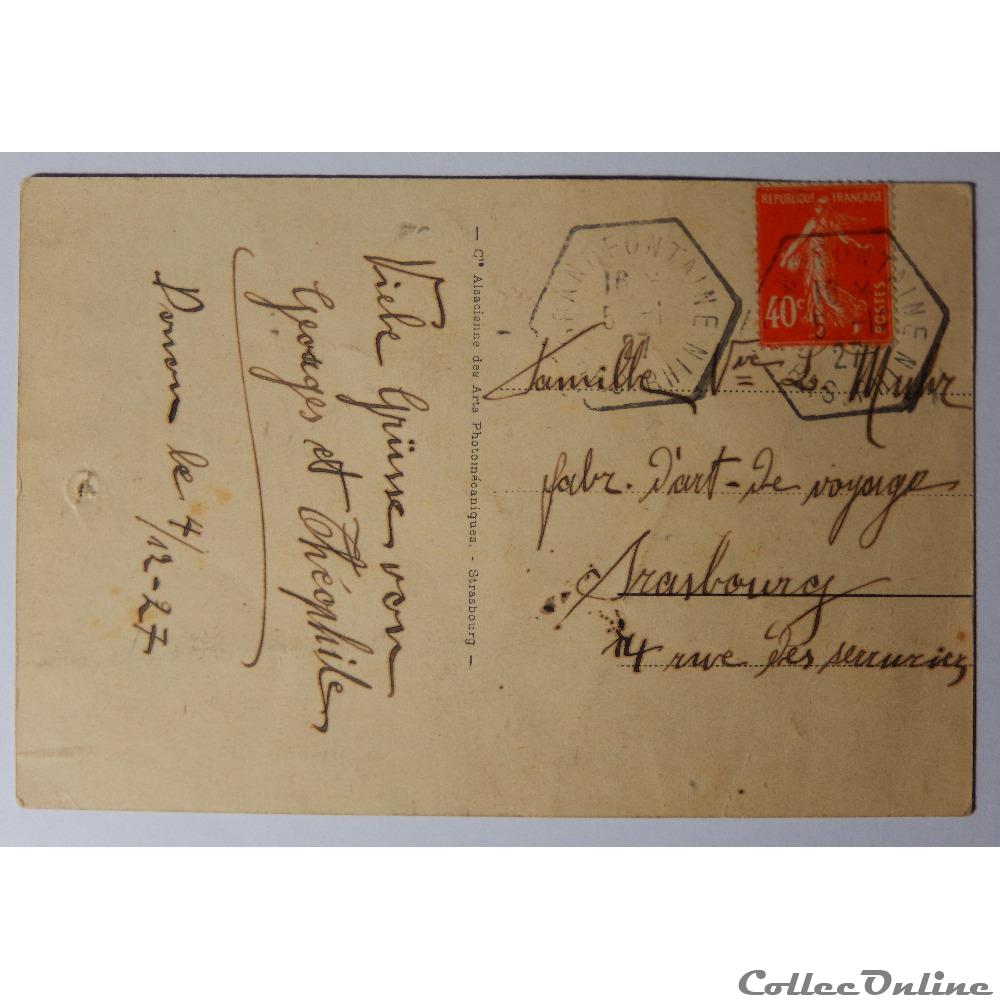 Donon le 4/12-27
Viele Grüsse von
Georges et Théophile
— Cie Alsacienne des Arts Photomécaniques. - Strasbourg —
GRANDFONTAINE
18
5
27
REPUBLIQUE FRANÇAISE
40c
POSTES
FONTAINE
27
Famille Vve L.
fabr. d'art-de voyage
Strasbourg
14 rue des serruriers
CollecOnline